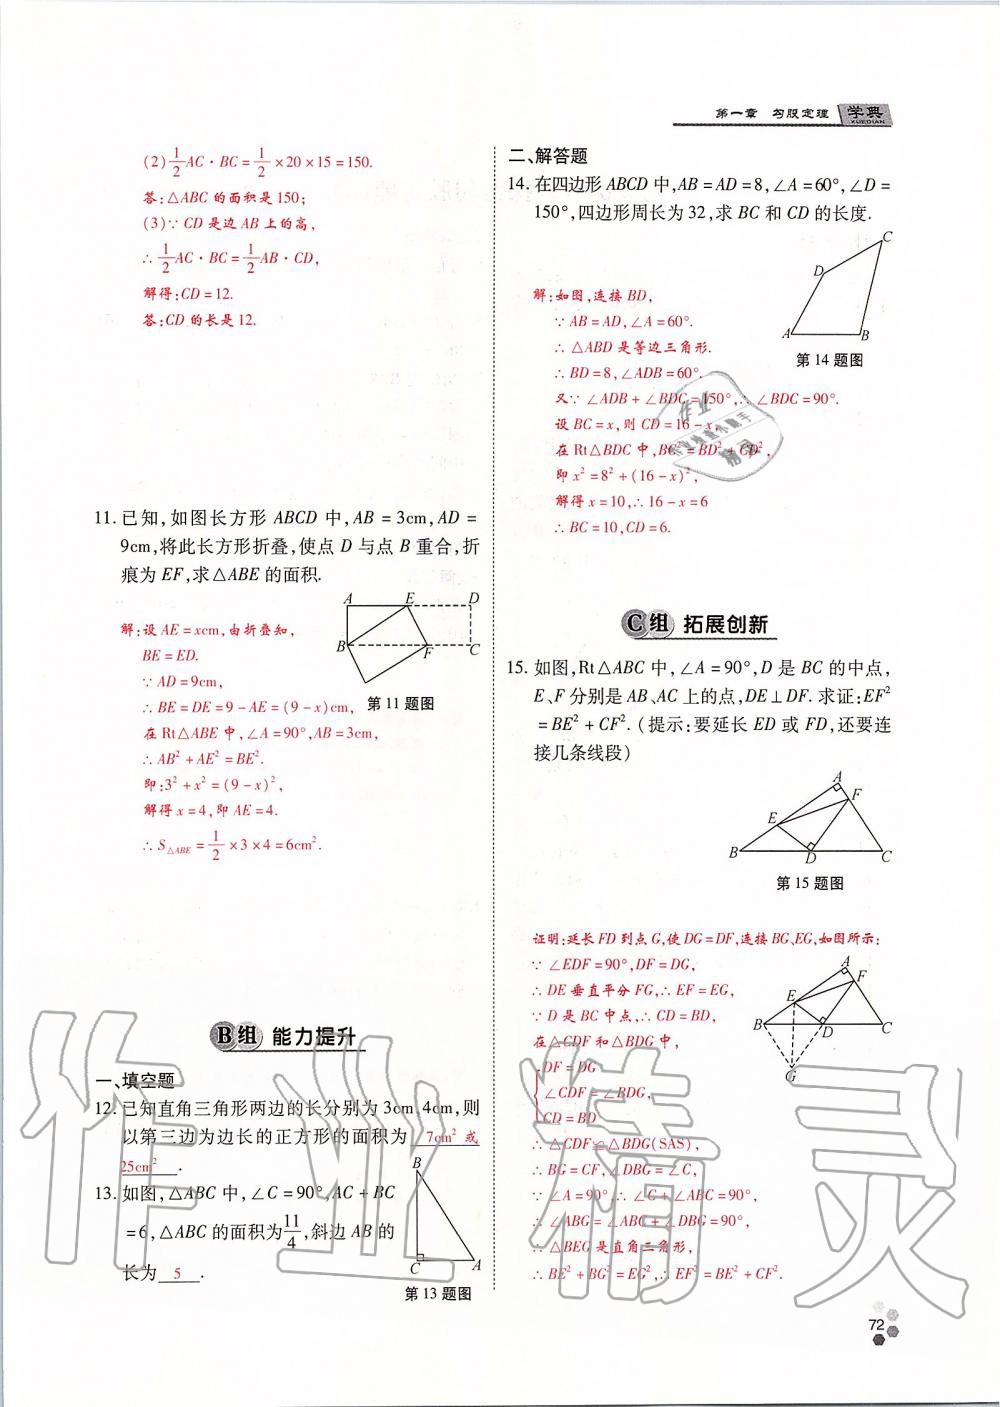 第一章 勾股定理 学典
XUEDIAN
(2)1/2AC·BC=1/2×20×15=150.
答:△ABC的面积是150;
(3)∵CD是边AB上的高,
∴1/2AC·BC=1/2AB·CD,
解得:CD=12.
答:CD的长是12.
11.已知,如图长方形ABCD中,AB=3cm,AD=
9cm,将此长方形折叠,使点D与点B重合,折
痕为EF,求△ABE的面积.
A E D
B F C
第11题图
解:设AE=xcm,由折叠知,
BE=ED.
∵AD=9cm,
∴BE=DE=9-AE=(9-x)cm
在Rt△ABE中,∠A=90°,AB=3cm,
∴AB²+AE²=BE².
即:3²+x²=(9-x)²,
解得x=4,即AE=4.
∴S△ABE=1/2×3×4=6cm².
B组 能力提升
一、填空题
12.已知直角三角形两边的长分别为3cm,4cm,则
以第三边为边长的正方形的面积为 7cm² 或
25cm² .
13.如图,△ABC中,∠C=90°,AC+BC
=6,△ABC的面积为11/4,斜边AB的
长为 5 .
B
C A
第13题图
二、解答题
14.在四边形ABCD中,AB=AD=8,∠A=60°,∠D=
150°,四边形周长为32,求BC和CD的长度.
C
D
A B
第14题图
解:如图,连接BD,
∵AB=AD,∠A=60°.
∴△ABD是等边三角形.
∴BD=8,∠ADB=60°.
又∵∠ADB+∠BDC=150°,∴∠BDC=90°.
设BC=x,则CD=16-x,
在Rt△BDC中,BC²=BD²+CD²,
即x²=8²+(16-x)²,
解得x=10,∴16-x=6
∴BC=10,CD=6.
C组 拓展创新
15.如图,Rt△ABC中,∠A=90°,D是BC的中点,
E、F分别是AB、AC上的点,DE⊥DF.求证:EF²
=BE²+CF².(提示:要延长ED或FD,还要连
接几条线段)
A
F
E
B D C
第15题图
证明:延长FD到点G,使DG=DF,连接BG、EG,如图所示:
∵∠EDF=90°,DF=DG,
∴DE垂直平分FG,∴EF=EG,
∵D是BC中点,∴CD=BD,
在△CDF和△BDG中,
DF=DG
∠CDF=∠BDG,
CD=BD
∴△CDF≌△BDG(SAS),
∴BG=CF,∠DBG=∠C,
∵∠A=90°∴∠C+∠ABC=90°,
∴∠ABG=∠ABC+∠DBG=90°,
∴△BEG是直角三角形,
∴BE²+BG²=EG²,∴EF²=BE²+CF².
A
F
E
B D C
G
72
作业精灵